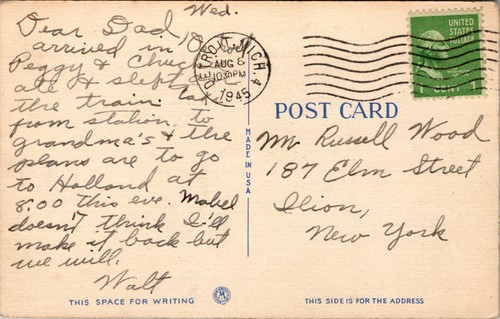 Wed.
Dear Dad,
arrived in
Peggy & Chuc
ate & slept
the train
from station to
grandma's & the
plans are to go
to Holland at
8:00 this eve. Mabel
doesn't think I'll
make it back but
we will.
Walt
DETROIT, MICH. 4
AUG 8
10 30 PM
1945
UNITED
STATES
POSTAGE
1 CENT 1
POST CARD
MADE IN USA
Mr Russell Wood
187 Elm Street
Ilion,
New York
THIS SPACE FOR WRITING
THIS SIDE IS FOR THE ADDRESS